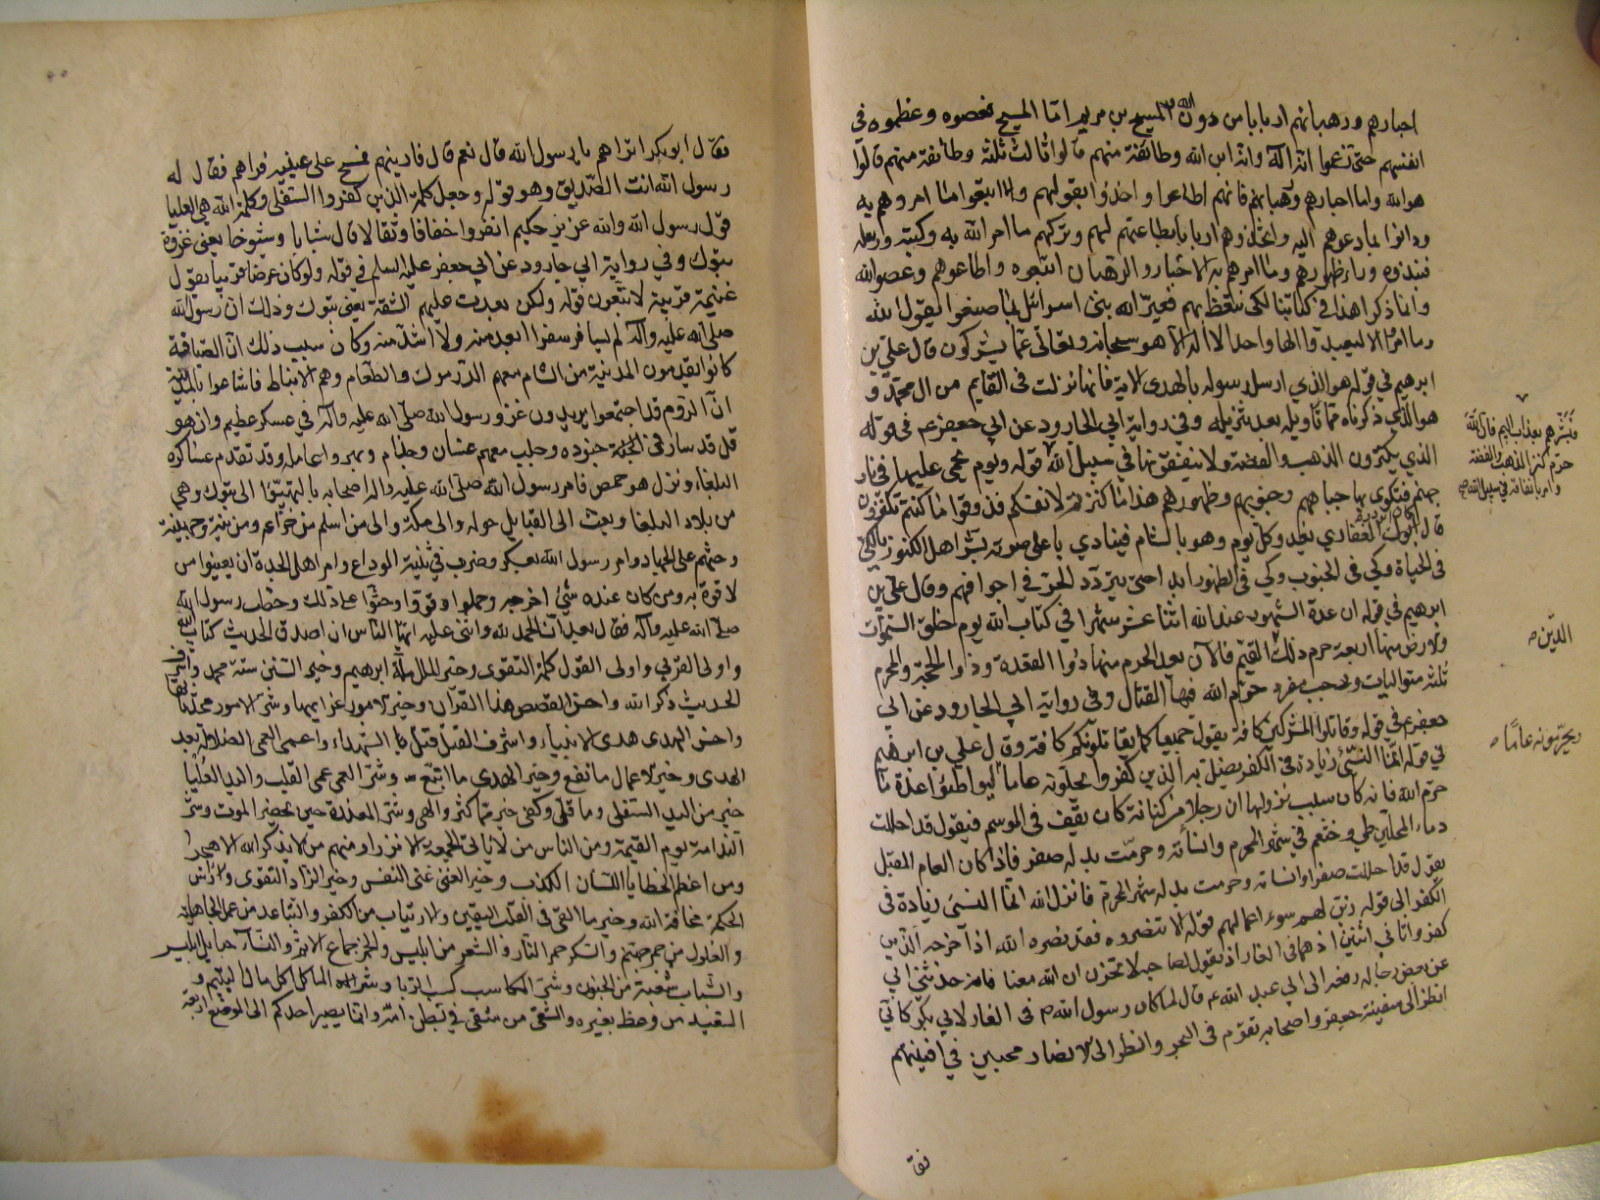 احبارهم ورهبانهم اربابا من دون الله والمسيح بن مريم اما المسيح فعصوه وعظموه في
انفسهم حتى زعموا انه اله وانه ابن الله وطائفة منهم قالوا ثالث ثلثة وطائفة منهم قالوا
هو الله واما احبارهم ورهبانهم فانهم اطاعوا واخذوا بقولهم واتبعوا ما امروهم به
ودانوا بما دعوهم اليه واتخذوهم اربابا بطاعتهم لهم وتركهم ما امر الله به وكتبه ورسله
فنبذوه وراء ظهورهم وما امرهم به الاحبار والرهبان اتبعوه واطاعوهم وعصوا الله
وانما ذكر هذا في كتابنا لكي نتعظ بهم فعير الله بني اسرائيل بما صنعوا يقول الله
وما امروا الا ليعبدوا الها واحدا لا اله الا هو سبحانه وتعالى عما يشركون قال علي بن
ابرهيم في قوله هو الذي ارسل رسوله بالهدى الاية فانها نزلت في القايم من ال محمد و
هو الذي ذكرناه مما تاويله بعد تنزيله وفي رواية ابي الجارود عن ابي جعفر ع في قوله
الذي يكنزون الذهب والفضة ولا ينفقونها في سبيل الله قوله ويوم يحمى عليها في نار
فبشرهم بعذاب اليم فان الله
حرم كنز الذهب والفضة
وامر بانفاقه في سبيل الله صح
جهنم فتكوى بها جباههم وجنوبهم وظهورهم هذا ما كنزتم لانفسكم فذوقوا ما كنتم تكنزون
قال كان ابو ذر الغفاري يغدو كل يوم وهو بالشام فينادي باعلى صوته بشر اهل الكنوز بالكي
في الحياة وكي في الجنوب وكي في الظهور ابدا حتى يتردد الحر في اجوافهم وقال علي بن
ابرهيم في قوله ان عدة الشهور عند الله اثنا عشر شهرا في كتاب الله يوم خلق السموات
والارض منها اربعة حرم ذلك القيم فالآن يعد الحرم منها ذوا القعدة وذوا الحجة والمحرم
الدين ص
ثلثه متواليات ورجب مفرد حرم الله فيها القتال وفي رواية ابي الجارود عن ابي
جعفر ع في قوله وقاتلوا المشركين كافة يقول جميعا كما يقاتلونكم كافة وقال علي بن ابرهيم
في قوله انما النسئ زيادة في الكفر يضل به الذين كفروا يحلونه عاما ليواطئوا عدة ما
ويحرمونه عاما ص
حرم الله فانه كان سبب نزولها ان رجلا من كنانة كان يقف في الموسم فيقول قد احللت
دماء المحلين طي وخثعم في شهر المحرم وانسأته وحرمت بدله صفر فاذا كان العام المقبل
يقول قد احللت صفرا وانساته وحرمت بدله شهر المحرم فانزل الله انما النسئ زيادة في
الكفر الى قوله زين لهم سوء اعمالهم قوله الا تنصروه فقد نصره الله اذ اخرجه الذين
كفروا ثاني اثنين اذ هما في الغار اذ يقول لصاحبه لا تحزن ان الله معنا فانه حدثني ابي
عن بعض رجاله رفعه الى ابي عبد الله ع قال لما كان رسول الله ص في الغار لابي بكر كاني
انظر الى سفينة جعفر واصحابه تقوم في البحر وانظر الى الانصار محتبين في افنيتهم
فقا
فقال ابو بكر اتراهم يا رسول الله قال نعم قال فارينهم فمسح على عينيه فراهم فقال له
رسول الله انت الصديق وهو قوله وجعل كلمة الذين كفروا السفلى وكلمة الله هي العليا
قول رسول الله والله عزيز حكيم انفروا خفافا وثقالا قال شبابا وشيوخا يعني غزوة
تبوك وفي رواية ابي جارود عن ابي جعفر عليه السلم في قوله ولو كان عرضا قريبا يقول
غنيمة قريبة لاتبعوك قوله ولكن بعدت عليهم الشقة يعني تبوك وذلك ان رسول الله
صلى الله عليه وآله لم يسافر سفرا ابعد منه ولا اشد منه وكان سبب ذلك ان الصيافة
كانوا يقدمون المدينة من الشام معهم الدرموك والطعام وهم الانباط فاشاعوا بالمدينة
ان الروم قد اجتمعوا يريدون غزو رسول الله صلى الله عليه وآله في عسكر عظيم وان هو
قل قد سار في الجنة جنوده وجلب معهم غسان وجذام وبهرا وعامله وقد تقدم عساكره
البلغاء ونزل هو حمص فامر رسول الله صلى الله عليه واله اصحابه بالتهيؤ الى تبوك وهي
من بلاد البلغا وبعث الى القبايل حوله والى مكة والى من اسلم من خزاعه ومزينة وجهينة
وحثهم على الجهاد وامر رسول الله بعسكر وضرب في ثنية الوداع وامر اهل الجدة ان يعينوا من
لا قوة به ومن كان عنده شئ اخرجه وحملوا وقووا وحثوا على ذلك وخطب رسول الله
صلى الله عليه وآله فقال بعد ان الحمد لله واثنى عليه ايها الناس ان اصدق الحديث كتاب الله
واولى القربي واولى القول كلمة التقوى وخير الملل ملة ابرهيم وخير السنن سنة محمد واشرف
الحديث ذكر الله واحسن القصص هذا القرآن وخير الامور عزايمها وشر الامور محدثاتها
واحسن الهدى هدى الانبياء واشرف القتل قتل الشهداء واعمى العمى الضلالة بعد
الهدى وخير الاعمال ما نفع وخير الهدى ما اتبع وشر العمى عمى القلب واليد العليا
خير من اليد السفلى وما قل وكفى خير مما كثر والهى وشر المعذرة حين يحضر الموت وشر
الندامة يوم القيمة ومن الناس من لا ياتي الجمعة الا نزرا ومنهم من لا يذكر الله الا هجرا
ومن اعظم الخطايا اللسان الكذب وخير الغنى غنى النفس وخير الزاد التقوى وراس
الحكمة مخافة الله وخير ما القي في القلب اليقين والارتياب من الكفر والتباعد من عمل الجاهلية
والغلول من جمر جهنم والسكر جمر النار والشعر من ابليس والخمر جماع الاثم والنساء حبايل ابليس
والشباب شعبة من الجنون وشر المكاسب كسب الربا وشر الماكل اكل مال اليتيم و
السعيد من وعظ بغيره والشقي من شقي في بطن امه وانما يصير احدكم الى موضع اربعة